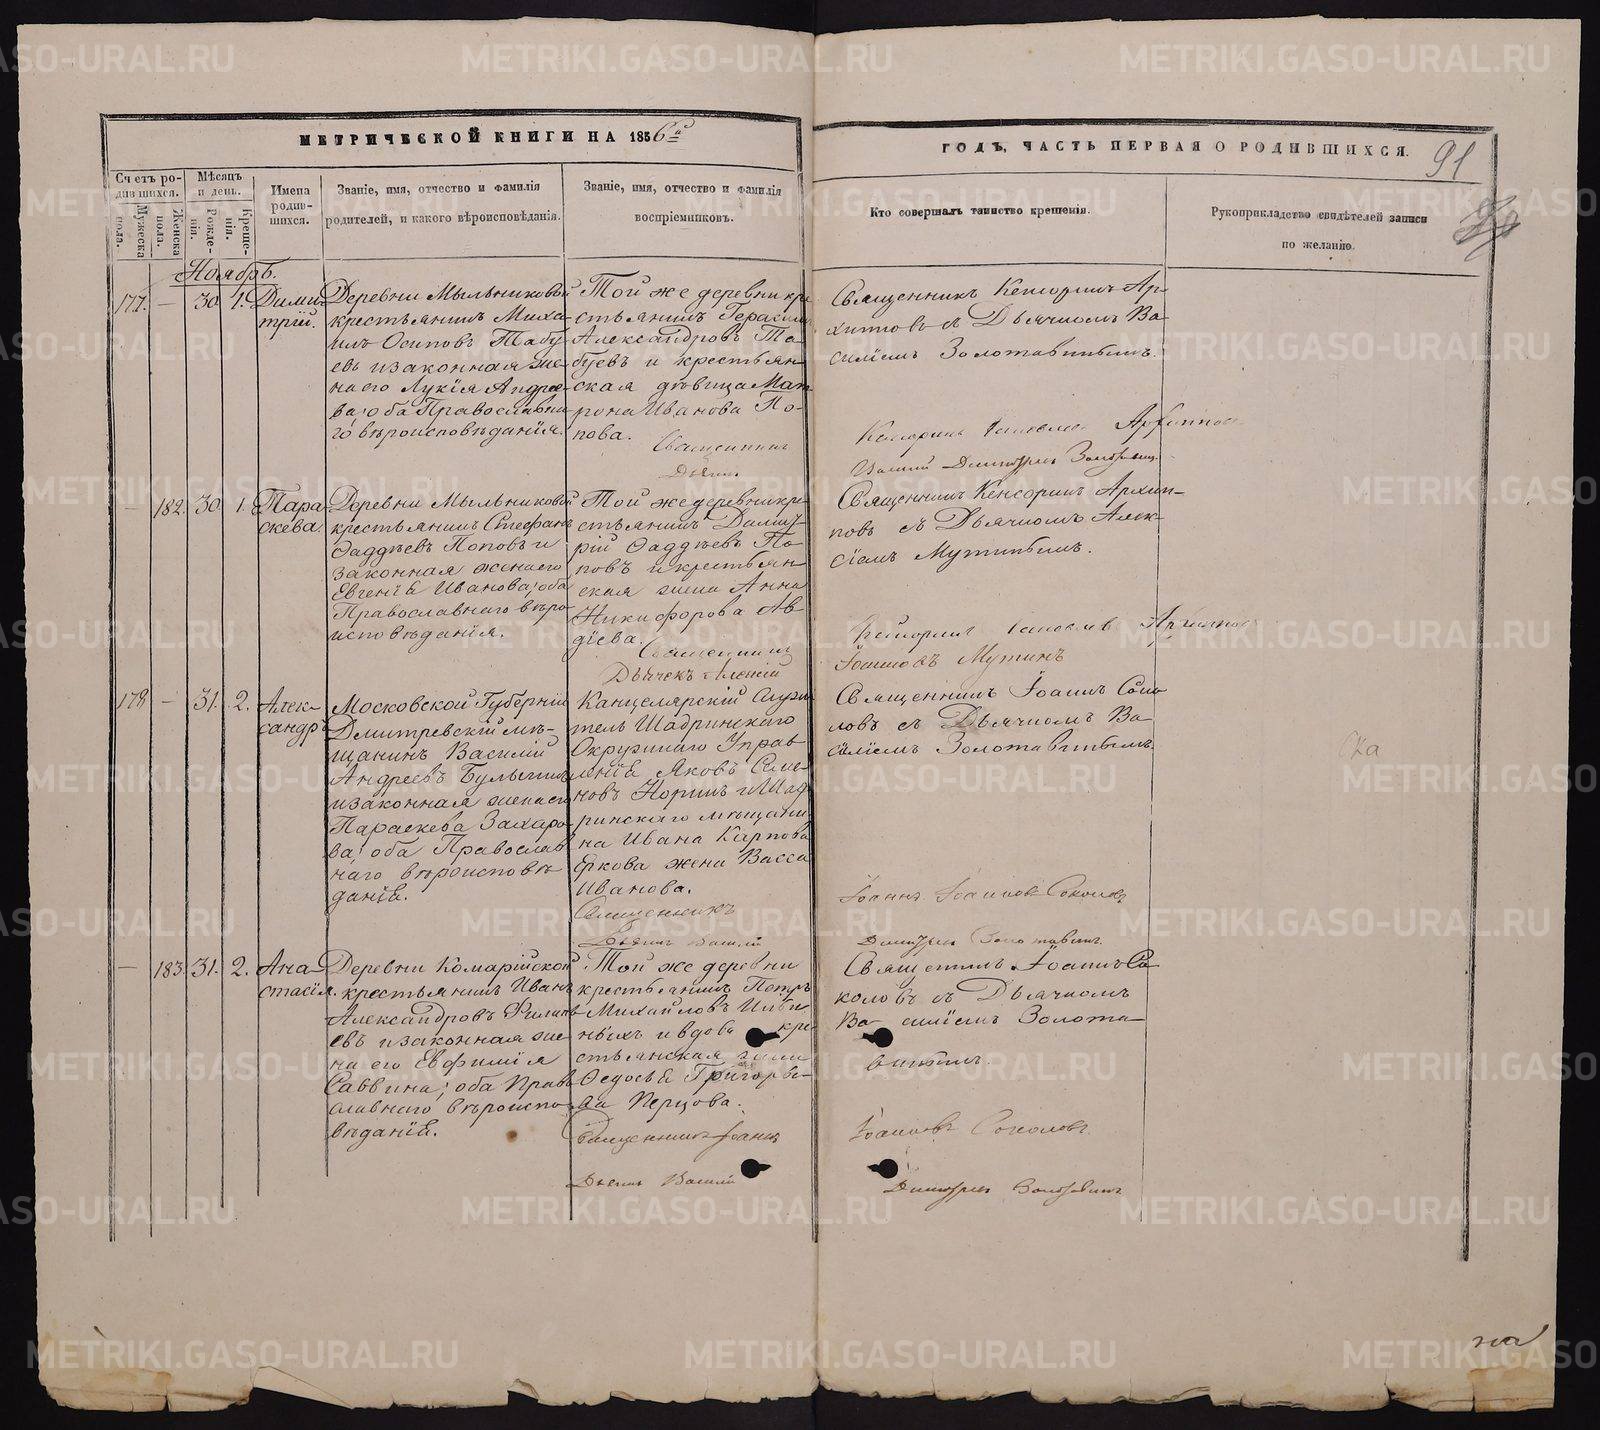 МЕТРИЧЕСКОЙ КНИГИ НА 1856й
ГОДЪ, ЧАСТЬ ПЕРВАЯ О РОДИВШИХСЯ.
91
Счетъ родившихся.
Мужеска пола.
Женска пола.
Мѣсяцъ и день.
Рожденія.
Крещенія.
Имена родившихся.
Званіе, имя, отчество и фамилія
родителей, и какого вѣроисповѣданія.
Званіе, имя, отчество и фамилія
воспріемниковъ.
Кто совершалъ таинство крещенія.
Рукоприкладство свидѣтелей записи
по желанію.
Ноябрь.
177. — 30. 1. Дими-
трій.
Деревни Мыльниковой
крестьянинъ Миха-
илъ Осиповъ Табу-
евъ и законная же-
на его Лукія Андрее-
ва; оба Православна-
го вѣроисповѣданія.
Той же деревни кре-
стьянинъ Герасимъ
Александровъ Та-
буевъ и крестьян-
ская дѣвица Мат-
рона Иванова По-
пова.
Священникъ
Дьячекъ
Священникъ Кенсоринъ Ар-
хиповъ съ Дьячкомъ Ва-
силіемъ Золотавинымъ.
— 182. 30 1. Пара-
скева.
Деревни Мыльниковой
крестьянинъ Стефанъ
Ѳаддѣевъ Поповъ и
законная жена его
Евгенія Иванова; оба
Православнаго вѣро-
исповѣданія.
Той же деревни кре-
стьянинъ Димит-
рій Ѳаддѣевъ По-
повъ и крестьян-
ская жена Анна
Никифорова Ав-
дѣева.
Священникъ
Дьячекъ Алексій
Священникъ Кенсоринъ Архип-
повъ съ Дьячкомъ Алек-
сіемъ Мутинымъ.
Мутинъ
178 — 31. 2. Алек-
сандръ
Московской Губерніи
Дмитревскій мѣ-
щанинъ Василій
Андреевъ Булыгинъ
и законная жена его
Параскева Захаро-
ва; оба Православ-
наго вѣроисповѣ-
данія.
Канцелярскій Служи-
тель Шадринскаго
Окружнаго Управ-
ленія Яковъ Семе-
новъ Норинъ и Шад-
ринскаго мѣщани-
на Ивана Карпова
Еркова жена Васса
Иванова.
Священникъ
Дьячекъ Василій
Священникъ Іоаннъ Соко-
ловъ съ Дьячкомъ Ва-
силіемъ Золотавинымъ.
Іоаннъ Іоанновъ Соколовъ
Димитріевъ Золотавинъ.
— 183. 31. 2. Ана-
стасія.
Деревни Комарійской
крестьянинъ Иванъ
Александровъ Филип-
евъ и законная же-
на его Евфимія
Саввина; оба Право-
славнаго вѣроиспо-
вѣданія.
Той же деревни
крестьянинъ Петръ
Михайловъ
ныхъ и вдова кре-
стьянская жена
Ѳедосья Григорье-
ва Перцова.
Священникъ Іоаннъ
Дьячекъ Василій
Священникъ Іоаннъ Со-
коловъ съ Дьячкомъ
Ва силіемъ Золота-
винымъ.
Іоанновъ Соколовъ.
Димитріевъ Золотавинъ
METRIKI.GASO-URAL.RU